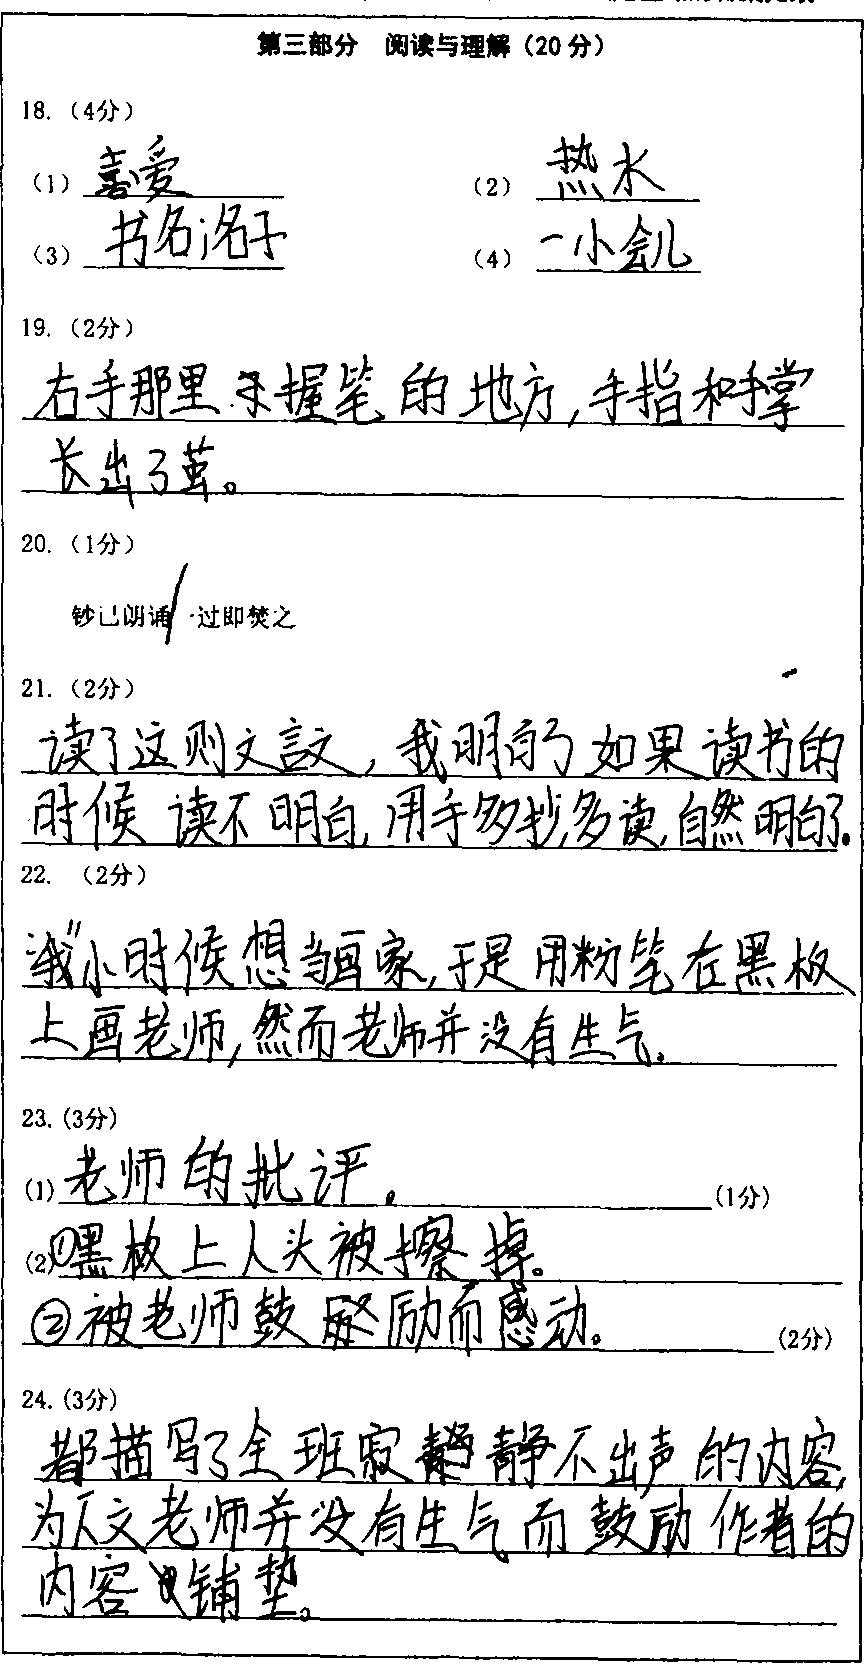 第三部分 阅读与理解（20分）
18.（4分）
（1）喜爱 （2）热水
（3）书名 （4）一小会儿
19.（2分）
右手那里握笔的地方，手指和手掌
长出了茧。
20.（1分）
钞已朗诵/一过即焚之
21.（2分）
读了这则文言文，我明白了如果读书的
时候读不明白，用手多抄，多读，自然明白了。
22.（2分）
“我”小时候想当画家，于是用粉笔在黑板
上画老师，然而老师并没有生气。
23.(3分)
(1)老师的批评。(1分)
(2)①黑板上人头被擦掉。
②被老师鼓励而感动。(2分)
24.(3分)
都描写了全班寂静不出声的内容，
为下文老师并没有生气而鼓励作者的
内容铺垫。